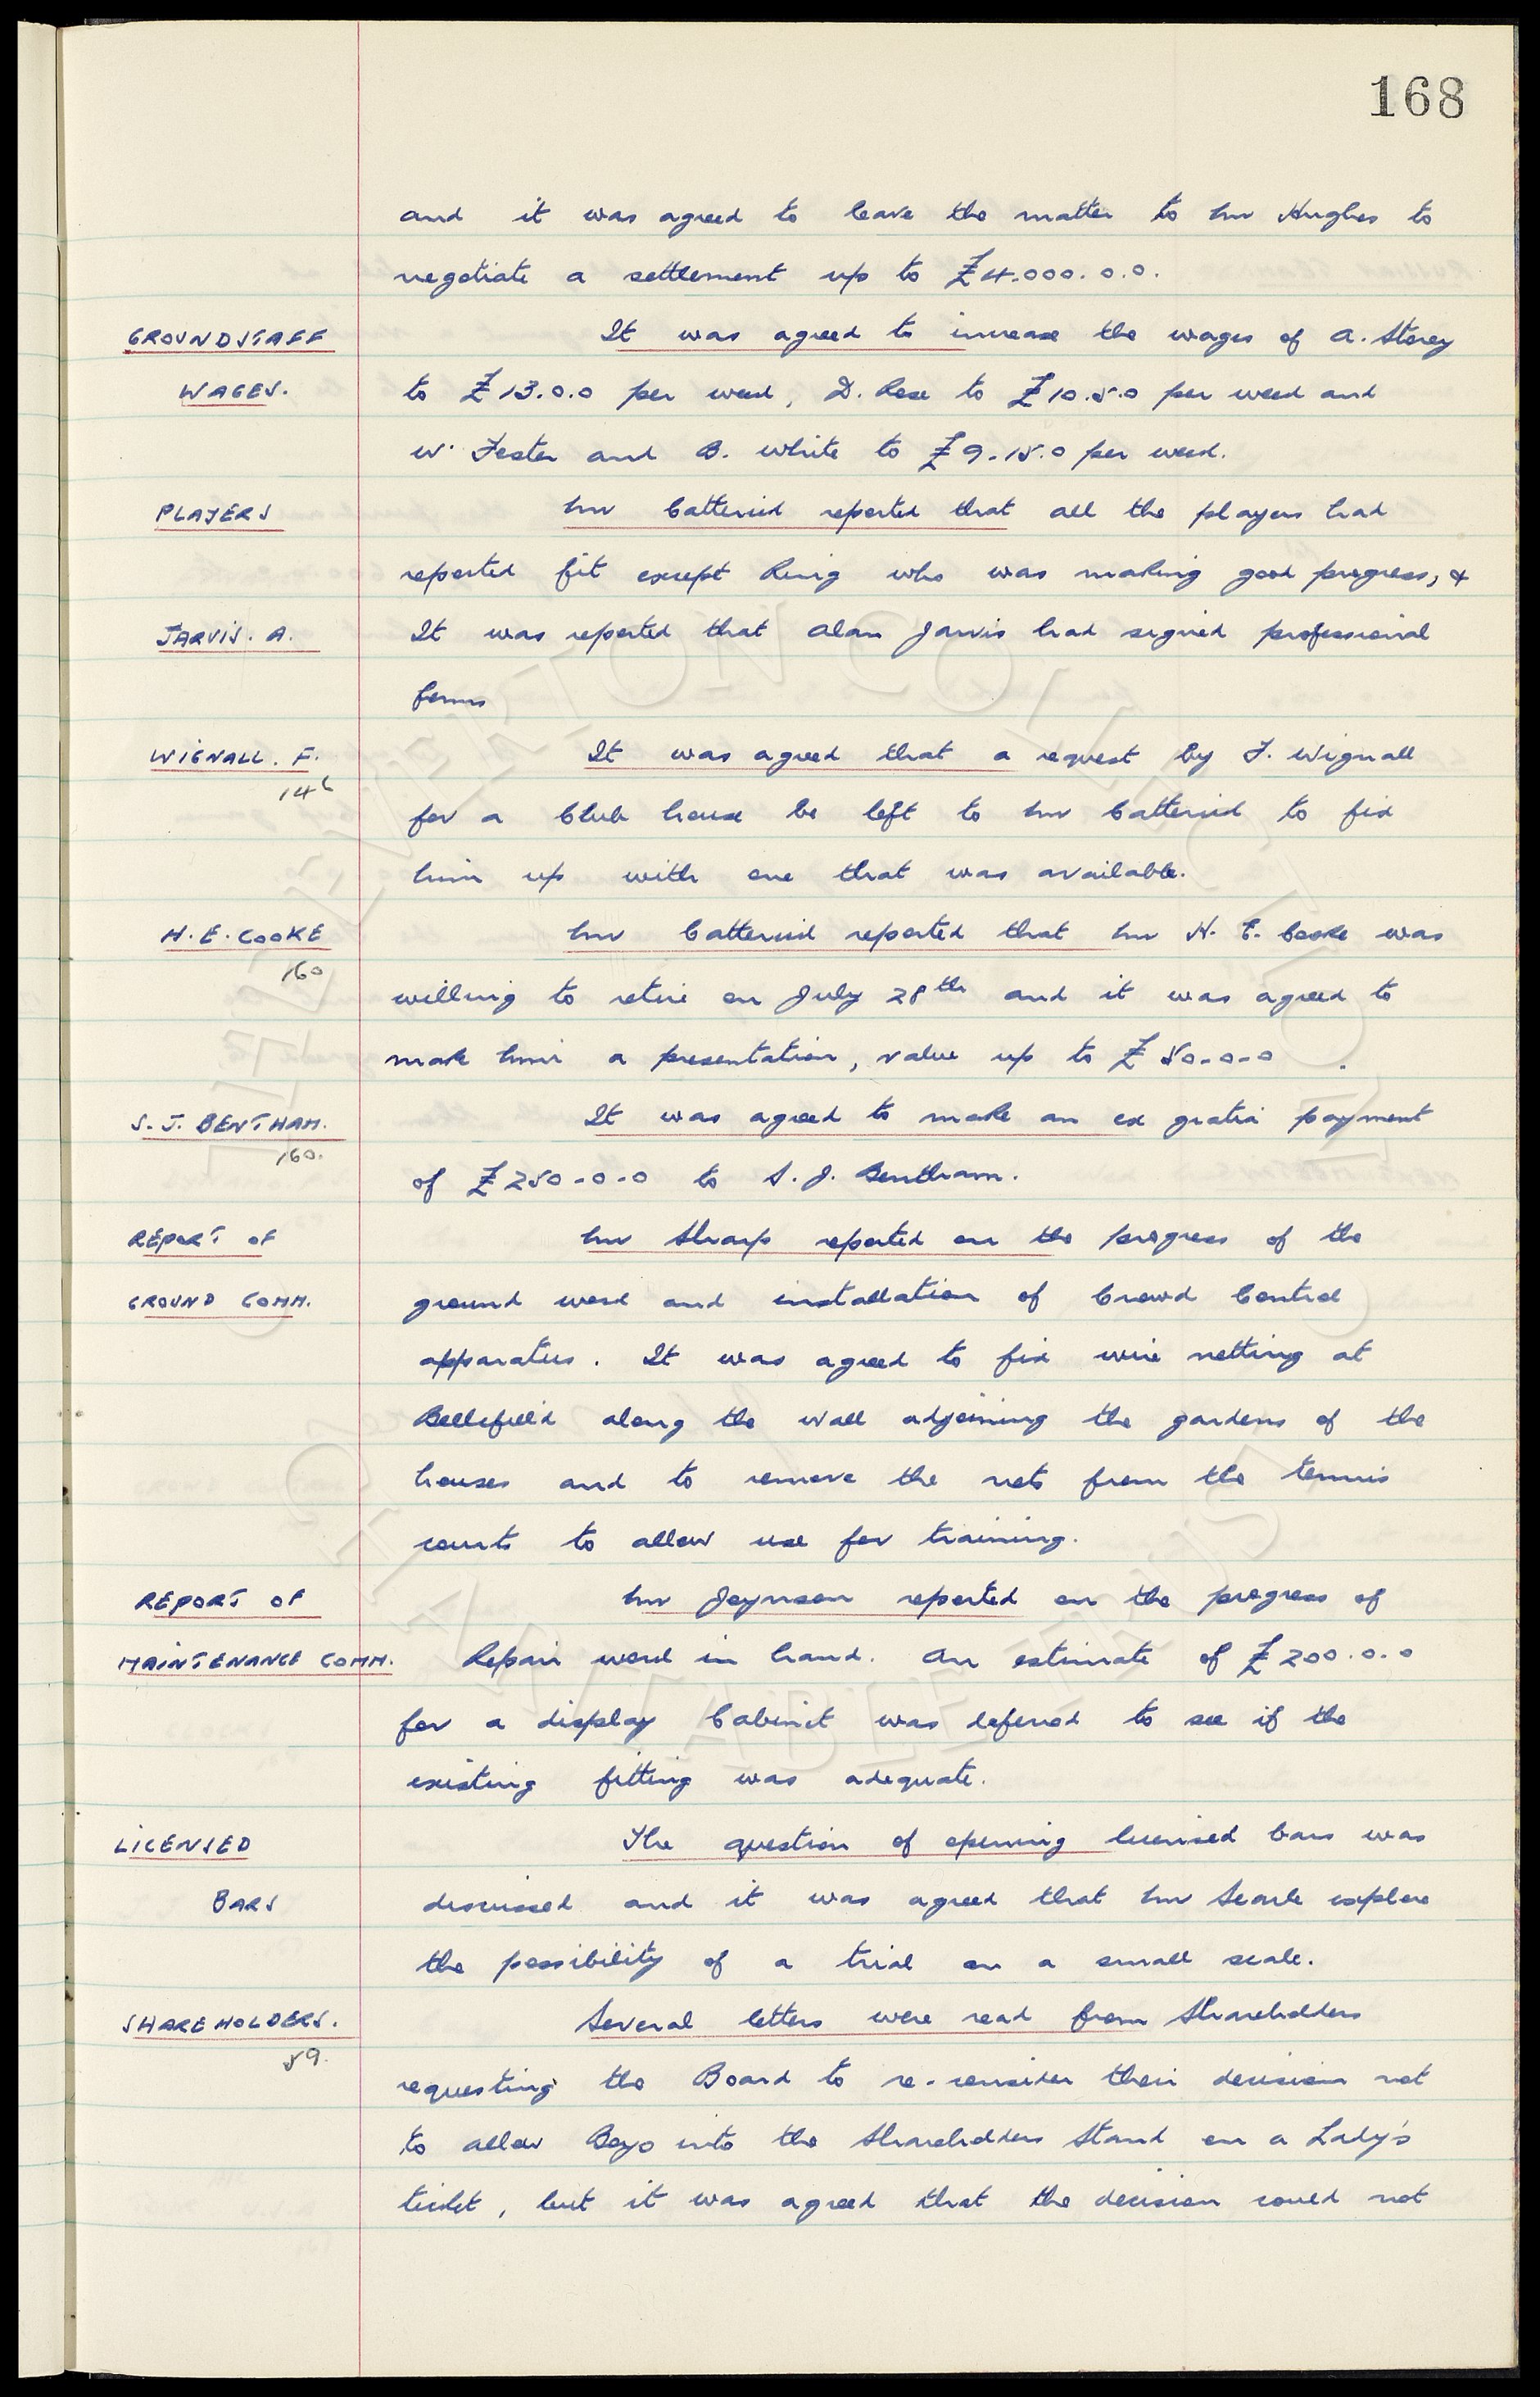 168
and it was agreed to leave the matter to Mr Hughes to
negotiate a settlement up to £4.000.0.0.
GROUNDSTAFF It was agreed to increase the wages of A. Storey
WAGES. to £13.0.0 per week, D. Rose to £10.5.0 per week and
W. Foster and B. White to £9.15.0 per week.
PLAYERS Mr Catterick reported that all the players had
reported fit except Ring who was making good progress, &
JARVIS. A. It was reported that Alan Jarvis had signed professional
forms
WIGNALL. F. It was agreed that a request by F. Wignall
146
for a Club house be left to Mr Catterick to fix
him up with one that was available.
H. E. COOKE Mr Catterick reported that Mr H. E. Cooke was
160
willing to retire on July 28th and it was agreed to
make him a presentation, value up to £50-0-0.
S. J. BENTHAM. It was agreed to make an ex gratia payment
160.
of £250-0-0 to S. J. Bentham.
REPORT OF Mr Sharp reported on the progress of the
GROUND COMM. ground work and installation of Crowd Control
apparatus. It was agreed to fix wire netting at
Bellefield along the wall adjoining the gardens of the
houses and to remove the nets from the tennis
courts to allow use for training.
REPORT OF Mr Joynson reported on the progress of
MAINTENANCE COMM. Repair work in hand. An estimate of £200.0.0
for a display Cabinet was deferred to see if the
existing fitting was adequate.
LICENSED The question of opening licensed bars was
BARS discussed and it was agreed that Mr Searle explore
the possibility of a trial on a small scale.
SHAREHOLDERS. Several letters were read from Shareholders
59.
requesting the Board to re-consider their decision not
to allow Boys into the Shareholders Stand on a Lady's
ticket, but it was agreed that the decision could not